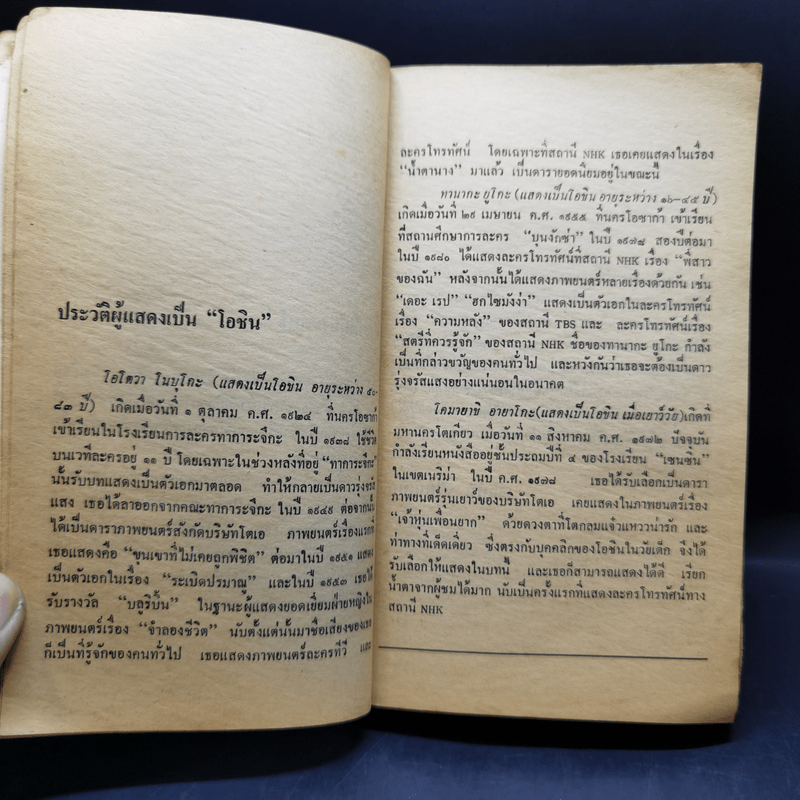 ประวัติผู้แสดงเป็น “โอชิน”
โอโตวา โนบุโกะ (แสดงเป็นโอชิน อายุระหว่าง ๕๐-
๘๓ ปี) เกิดเมื่อวันที่ ๑ ตุลาคม ค.ศ. ๑๙๒๔ ที่นครโอซาก้า
เข้าเรียนในโรงเรียนการละครทาการะจึกะ ในปี ๑๙๓๘ ใช้ชีวิต
บนเวทีละครอยู่ ๑๑ ปี โดยเฉพาะในช่วงหลังที่อยู่ “ทาการะจึกะ”
นั้นรับบทแสดงเป็นตัวเอกมาตลอด ทำให้กลายเป็นดาวรุ่งจรัส
แสง เธอได้ลาออกจากคณะทาการะจึกะ ในปี ๑๙๔๙ ต่อจากนั้น
ได้เป็นดาราภาพยนตร์สังกัดบริษัทโตเอ ภาพยนตร์เรื่องแรกที่
เธอแสดงคือ “ขุนเขาที่ไม่เคยถูกพิชิต” ต่อมาในปี ๑๙๕๑ แสดง
เป็นตัวเอกในเรื่อง “ระเบิดปรมาณู” และในปี ๑๙๕๓ เธอได้
รับรางวัล “บลูริบิ้น” ในฐานะผู้แสดงยอดเยี่ยมฝ่ายหญิงใน
ภาพยนตร์เรื่อง “จำลองชีวิต” นับตั้งแต่นั้นมาชื่อเสียงของเธอ
ก็เป็นที่รู้จักของคนทั่วไป เธอแสดงภาพยนตร์ละครทีวี และ
ละครโทรทัศน์ โดยเฉพาะที่สถานี NHK เธอเคยแสดงในเรื่อง
“น้ำตานาง” มาแล้ว เป็นดารายอดนิยมอยู่ในขณะนี้
ทานากะ ยูโกะ (แสดงเป็นโอชิน อายุระหว่าง ๑๖-๔๕ ปี)
เกิดเมื่อวันที่ ๒๙ เมษายน ค.ศ. ๑๙๕๕ ที่นครโอซาก้า เข้าเรียน
ที่สถานศึกษาการละคร “บุนงักซ่า” ในปี ๑๙๗๘ สองปีต่อมา
ในปี ๑๙๘๐ ได้แสดงละครโทรทัศน์ที่สถานี NHK เรื่อง “พี่สาว
ของฉัน” หลังจากนั้นได้แสดงภาพยนตร์หลายเรื่องด้วยกัน เช่น
“เดอะ เรป” “ฮกไซมังง่า” แสดงเป็นตัวเอกในละครโทรทัศน์
เรื่อง “ความหลัง” ของสถานี TBS และ ละครโทรทัศน์เรื่อง
“สตรีที่ควรรู้จัก” ของสถานี NHK ชื่อของทานากะ ยูโกะ กำลัง
เป็นที่กล่าวขวัญของคนทั่วไป และหวังกันว่าเธอจะต้องเป็นดาว
รุ่งจรัสแสงอย่างแน่นอนในอนาคต
โคมายาชิ อายาโกะ(แสดงเป็นโอชิน เมื่อเยาว์วัย)เกิดที่
มหานครโตเกียว เมื่อวันที่ ๑๑ สิงหาคม ค.ศ. ๑๙๗๒ ปัจจุบัน
กำลังเรียนหนังสืออยู่ชั้นประถมปีที่ ๔ ของโรงเรียน “เซนชิน”
ในเขตเนริม่า ในปี ค.ศ. ๑๙๗๘ เธอได้รับเลือกเป็นดารา
ภาพยนตร์รุ่นเยาว์ของบริษัทโตเอ เคยแสดงในภาพยนตร์เรื่อง
“เจ้าหุ่นเพื่อนยาก” ด้วยดวงตาที่โตกลมแจ๋วแหววน่ารัก และ
ท่าทางที่เด็ดเดี่ยว ซึ่งตรงกับบุคคลิกของโอชินในวัยเด็ก จึงได้
รับเลือกให้แสดงในบทนี้ และเธอก็สามารถแสดงได้ดี เรียก
น้ำตาจากผู้ชมได้มาก นับเป็นครั้งแรกที่แสดงละครโทรทัศน์ทาง
สถานี NHK